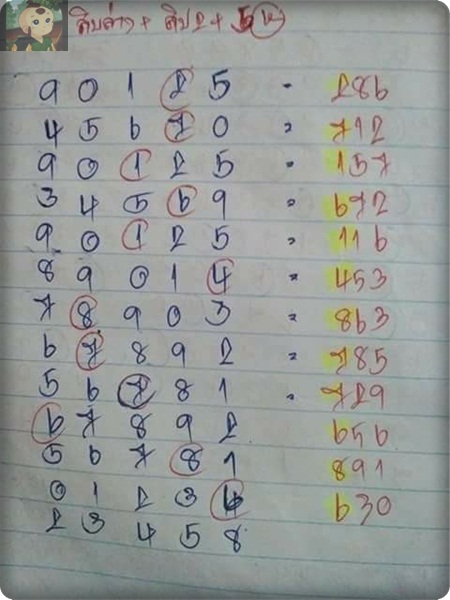 สิบล่าง + สิบ2 + 5
9 0 1 2 5 = 286
4 5 6 7 0 = 712
9 0 1 2 5 = 157
3 4 5 6 9 = 672
9 0 1 2 5 = 116
8 9 0 1 4 = 453
7 8 9 0 3 = 863
6 7 8 9 2 = 785
5 6 7 8 1 = 729
6 7 8 9 2 656
5 6 7 8 1 891
0 1 2 3 630
2 3 4 5 8